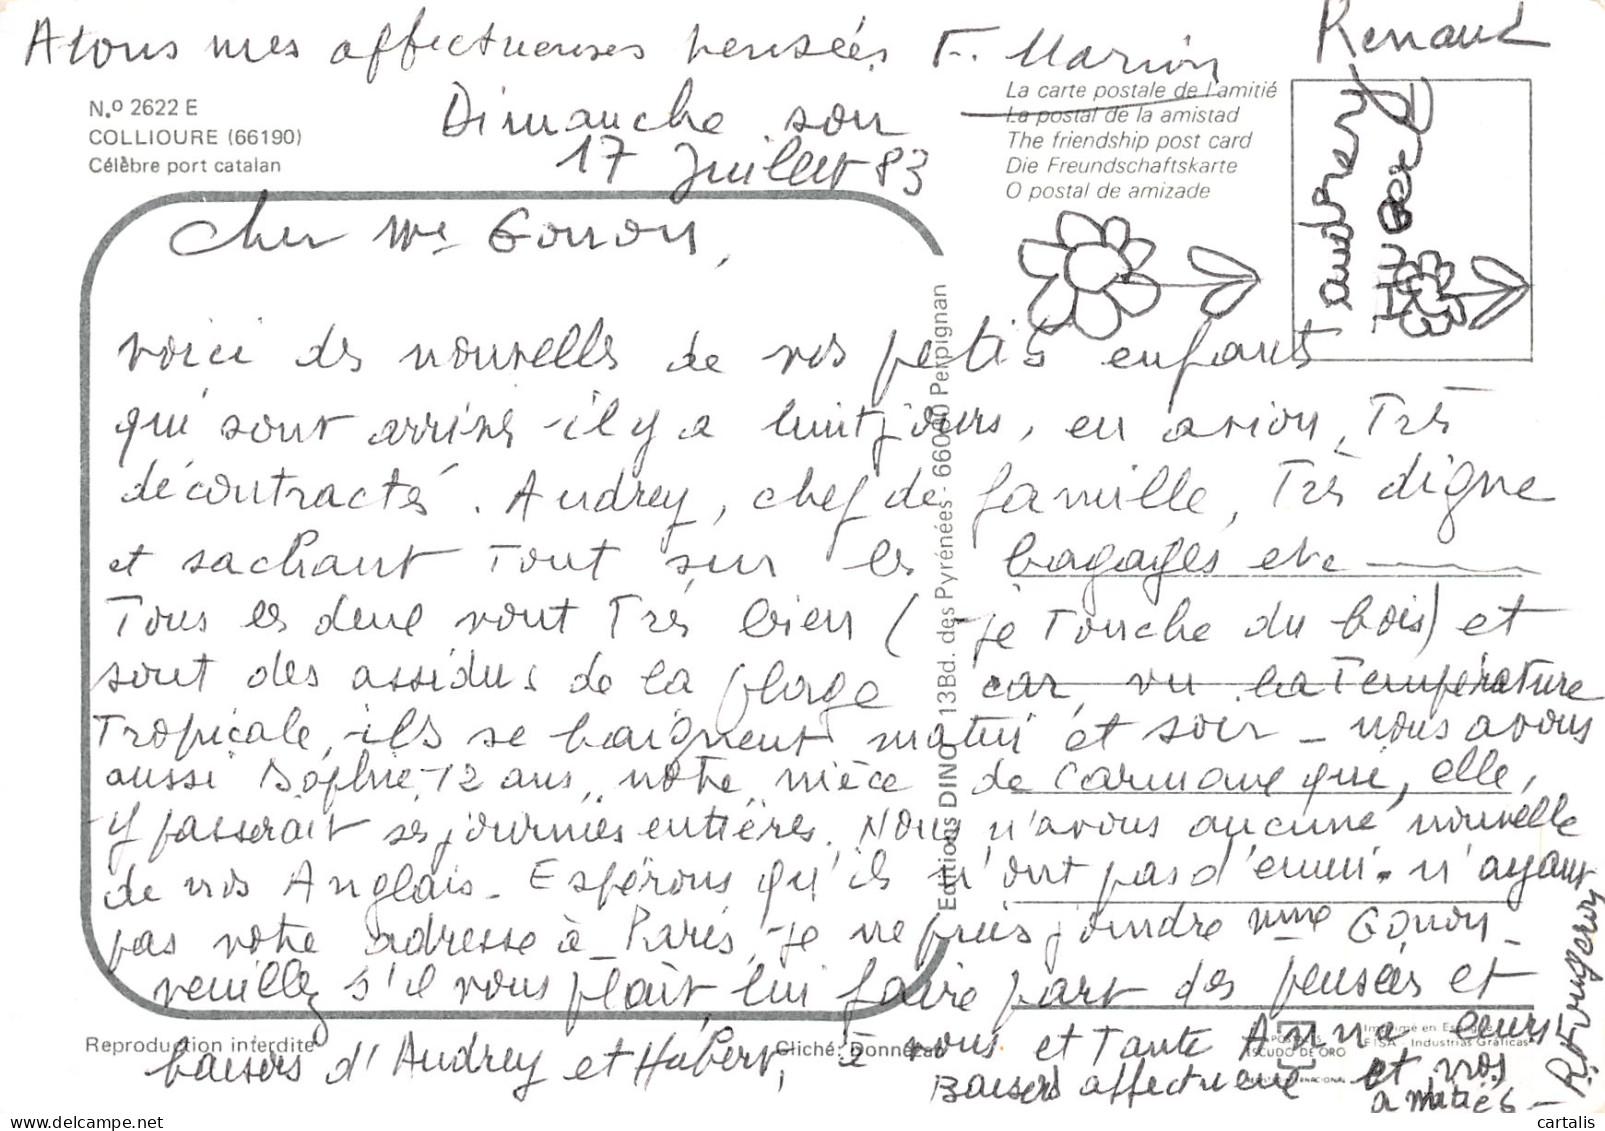 A tous mes affectueuses pensées F. Marion
Renaud
N.º 2622 E
COLLIOURE (66190)
Célèbre port catalan
Dimanche soir
17 Juillet 83
La carte postale de l'amitié
La postal de la amistad
The friendship post card
Die Freundschaftskarte
O postal de amizade
audrey
Cher Mr Gonon,
voici des nouvelles de vos petits enfants
qui sont arrivés il y a huit jours, en avion, Très
décontractés. Audrey, chef de famille, Très digne
et sachant Tout sur les bagages etc
Tous les deux vont Très bien (je Touche du bois) et
sont des assidus de la plage car, vu la Température
Tropicale, ils se baignent matin et soir - nous avons
aussi Sophie 12 ans, notre nièce de Carmaux qui, elle,
y passerait ses journées entières. Nous n'avons aucune nouvelle
de vos Anglais - Espérons qu'ils n'ont pas d'ennui. n'ayant
pas votre adresse à Paris, je ne puis joindre Mme Gonon -
veuillez s'il vous plaît, lui faire part des pensées et
baisers d'Audrey et Hubert, à vous et Tante Anne leurs
Baisers affectueux et nos
amitiés -
Editions DINO 13Bd. des Pyrénées - 66000 Perpignan
Reproduction interdite
Cliché: Donnezac
ESCUDO DE ORO
Imprimé en Espagne
FISA - Industrias Gráficas
cartalis